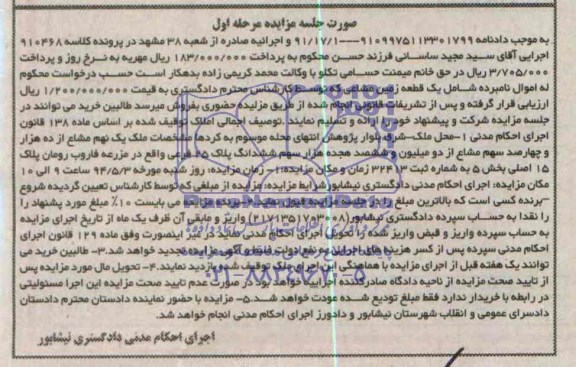 صورت جلسه مزایده مرحله اول
به موجب دادنامه 9109975113301799---91/17/1 و اجرائیه صادره از شعبه 38 مشهد در پرونده کلاسه 910468
اجرایی آقای سید مجید ساسانی فرزند حسن محکوم به پرداخت 183/000/000 ریال مهریه به نرخ روز و پرداخت
3/705/000 ریال در حق خانم میمنت حسامی تکلو با وکالت محمد کریمی زاده بدهکار است حسب درخواست محکوم
له اموال نامبرده شامل یک قطعه زمین مشاعی که توسط کارشناس محترم دادگستری به قیمت 1/200/000/000 ریال
ارزیابی قرار گرفته و پس از تشریفات قانونی انجام شده از طریق مزایده حضوری بفروش میرسد طالبین خرید می توانند در
جلسه مزایده شرکت و پیشنهاد خود را ارائه و تسلیم نمایند. توصیف اجمالی املاک توقیف شده بر اساس ماده 138 قانون
اجرای احکام مدنی 1-محل ملک-شرق بلوار پژوهش انتهای محله موسوم به کردها مشخصات ملک یک نهم مشاع از ده هزار
و چهارصد سهم مشاع از دو میلیون و ششصد هجده هزار سهم ششدانگ پلاک 25 فرعی واقع در مزرعه فاروب رومان پلاک
15 اصلی بخش 5 به شماره ثبت 32413 زمان و مکان مزایده:1- زمان مزایده: روز شنبه مورخه 94/5/3 ساعت 9 الی 10
مکان مزایده: اجرای احکام مدنی دادگستری نیشابور شرایط مزایده: مزایده از مبلغی که توسط کارشناس تعیین گردیده شروع
-برنده کسی است که بالاترین مبلغ را در جلسه مزایده قبول نماید. -برنده مزایده می بایست 10٪ مبلغ مورد پیشنهاد را
را نقدا به حساب سپرده دادگستری نیشابور (2171351703008) واریز و مابقی آن ظرف یک ماه از تاریخ اجرای مزایده
به حساب سپرده واریز و قبض واریز شده را تحویل اجرای احکام مدنی نماید در غیر اینصورت وفق ماده 129 قانون اجرای
احکام مدنی سپرده پس از کسر هزینه های اجرایی به نفع دولت ضبط و آگهی مزایده تجدید خواهد شد.3- طالبین خرید می
توانند یک هفته قبل از اجرای مزایده با هماهنگی این اجرای ملک توقیف شده بازدید نمایند.4- تحویل مال مورد مزایده پس
از تایید صحت مزایده از ناحیه دادگاه صادرکننده اجرائیه خواهد بود در صورت عدم تایید صحت مزایده این اجرا مسئولیتی
در رابطه با خریدار ندارد فقط مبلغ تودیع شده عودت خواهد شد.5- مزایده با حضور نماینده دادستان محترم دادستان
دادسرای عمومی و انقلاب شهرستان نیشابور و دادورز اجرای احکام مدنی انجام خواهد شد.
اجرای احکام مدنی دادگستری نیشابور